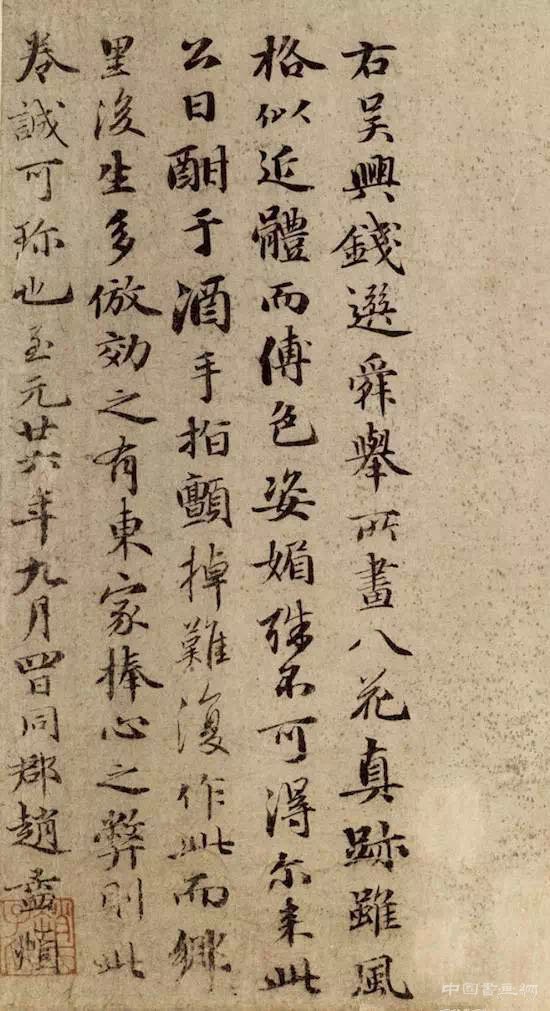 右吳興錢選舜舉所畫八花真跡雖風
格似近體而傅色姿媚殊不可得尒來此
公日酣于酒手指顫掉難復作此而鄉
里後生多倣効之有東家捧心之弊則此
卷誠可珎也至元廿六年九月四日同郡趙孟頫
中国書画網